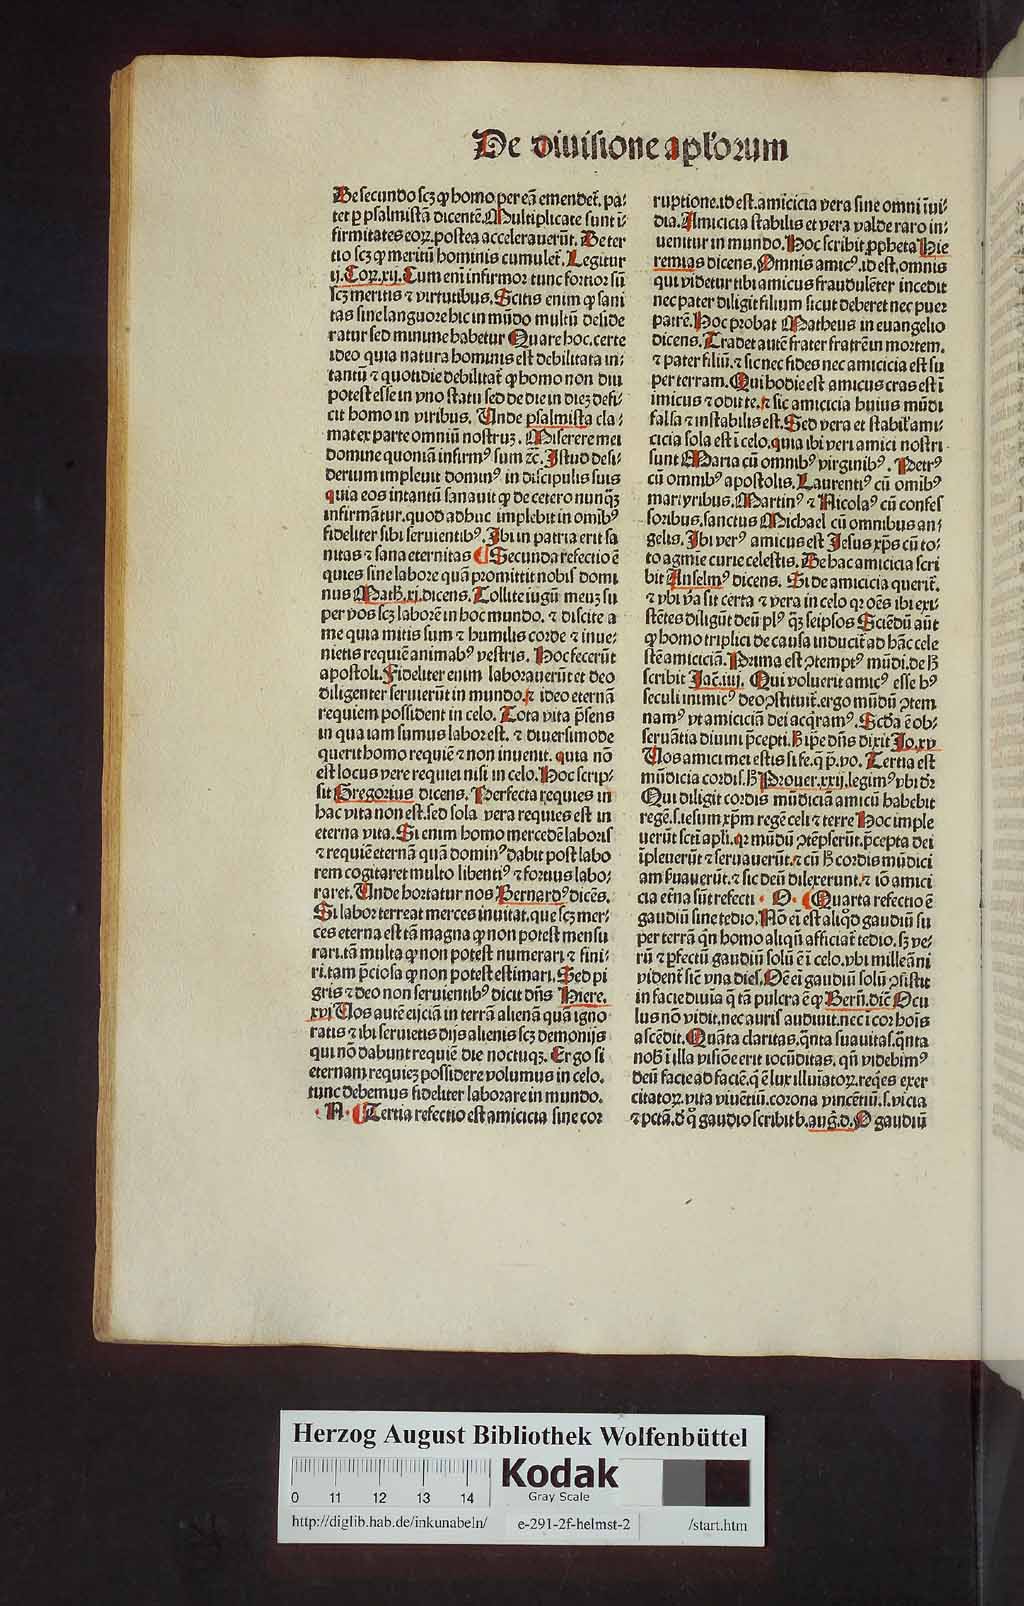 De diuisione aplõrum
De secundo scz ꝙ homo per eã emendet᷒. pa⸗
tet p psalmistã dicentẽ. Multiplicate sunt ĩ⸗
firmitates eoꝝ. postea accelerauerũt. De ter
tio scz ꝙ meritũ hominis cumulet᷒. Legitur
ij. Coꝝ. xij. Cum eni infirmor tunc fortior sũ
scz meritis ⁊ virtutibus. Scitis enim ꝙ sani
tas sine languore hic in mũdo multũ deside
ratur sed minime habetur Quare hoc. certe
ideo quia natura hominis est debilitata in⸗
tantũ ⁊ quotidie debilitat᷒ ꝙ homo non diu
potest esse in vno statu sed de die in diez defi⸗
cit homo in viribus. Unde psalmista cla⸗
mat ex parte omniũ nostruz. Miserere mei
domine quoniã infirmꝰ sum ⁊c̃. Istud desi⸗
derium impleuit dominꝰ in discipulis suis
quia eos intantũ sanauit ꝙ de cetero nunqȝ
infirmãtur. quod adhuc implebit in omĩbꝰ
fideliter sibi seruientibꝰ. Ibi in patria erit sa
nitas ⁊ sana eternitas ¶ Secunda refectio ẽ
quies sine labore quã promittit nobis domi
nus Math. xj. dicens. Tollite iugũ meuz su
per vos scz laborẽ in hoc mundo. ⁊ discite a
me quia mitis sum ⁊ humilis corde ⁊ inue⸗
nietis requiẽ animabꝰ vestris. Hoc fecerũt
apostoli. Fideliter enim laborauerũt et deo
diligenter seruierũt in mundo. ⁊ ideo eternã
requiem possident in celo. Tota vita p̃sens
in qua iam sumus labor est. ⁊ diuersimode
querit homo requiẽ ⁊ non inuenit. quia nõ
est locus vere requiei nisi in celo. Hoc scrip⸗
sit Gregorius dicens. Perfecta requies in
hac vita non est. sed sola vera requies est in
eterna vita. Si enim homo mercedẽ laboris
⁊ requiẽ eternã quã dominꝰ dabit post labo
rem cogitaret multo libentiꝰ ⁊ fortius labo⸗
raret. Unde hortatur nos Bernardꝰ dicẽs.
Si labor terreat merces inuitat. que scz mer⸗
ces eterna est tã magna ꝙ non potest mensu
rari. tã multa ꝙ non potest numerari ⁊ fini⸗
ri. tam p̃ciosa ꝙ non potest estimari. Sed pi
gris ⁊ deo non seruientibꝰ dicit dñs Hiere.
xvj Uos autẽ eijciã in terrã alienã quã igno
ratis ⁊ ibi seruietis dijs alienis scz demonijs
qui nõ dabunt requiẽ die noctuqȝ. Ergo si
eternam requiez possidere volumus in celo.
tunc debemus fideliter laborare in mundo.
· N · ¶ Tertia refectio est amicicia sine cor
ruptione. id est. amicicia vera sine omni ĩui⸗
dia. Amicicia stabilis et vera valde raro in⸗
uenitur in mundo. Hoc scribit ꝓpheta Hie
remias dicens. Omnis amicꝰ. id est. omnis
qui videtur tibi amicus fraudulẽter incedit
nec pater diligit filium sicut deberet nec puer
patrẽ. Hoc probat Matheus in euangelio
dicens. Tradet autẽ frater fratrẽ in mortem.
⁊ pater filiũ. ⁊ sic nec fides nec amicicia est su
per terram. Qui hodie est amicus cras est ĩ
imicus ⁊ odit te. ⁊ sic amicicia huius mũdi
falsa ⁊ instabilis est. Sed vera et stabil᷒ ami⸗
cicia sola est ĩ celo. quia ibi veri amici nostri
sunt Maria cũ omnibꝰ virginibꝰ. Petrꝰ
cũ omnibꝰ apostolis. Laurentiꝰ cũ omibꝰ
martyribus. Martinꝰ ⁊ Nicolaꝰ cũ confes
soribus. sanctus Michael cũ omnibus an⸗
gelis. Ibi verꝰ amicus est Jesus xp̃s cũ to⸗
to agmine curie celestis. De hac amicicia scri
bit Anselmꝰ dicens. Si de amicicia querit᷒.
⁊ vbi v̾a sit certa ⁊ vera in celo qꝛ oẽs ibi exi⸗
stẽtes diligũt deũ plꝰ qȝ seipsos Sciẽdũ aũt
ꝙ homo triplici de causa inducit᷒ ad hãc cele
stẽ amiciciã. Prima est ꝯtemptꝰ mũdi. de h̾
scribit Jac̃. iiij. Qui voluerit amicꝰ esse hꝰ
seculi inimicꝰ deo ꝯstituit᷒. ergo mũdũ ꝯtem
namꝰ vt amiciciã dei acq̃ramꝰ. Scd̃a ẽ ob⸗
seruãtia diuini p̃cepti. h̾ ip̃e dñs dixit Jo. xv
Uos amici mei estis si fe. q̃ p̃. vo. Tertia est
mũdicia cordis. h̾ Prouer. xxij. legimꝰ vbi dr̃
Qui diligit cordis mũdiciã amicũ habebit
regẽ. s. iesum xp̃m regẽ celi ⁊ terre Hoc imple
uerũt scti apli. qꝛ mũdũ ꝯtẽpserũt. p̃cepta dei
ĩpleuerũt ⁊ seruauerũt. ⁊ cũ h̾ cordis mũdici
am h̾uauerũt. ⁊ sic deũ dilexerunt. ⁊ iõ amici
cia etñа sũt refecti · O · ¶ Quarta refectio ẽ
gaudiũ sine tedio. Nõ eĩ est aliqd gaudiũ su
per terrã qñ homo aliqñ afficiat᷒ tedio. sȝ ve⸗
rũ ⁊ ꝑfectũ gaudiũ solũ ẽ ĩ celo. vbi mille ãni
vident᷒ sic̃ vna dies. Oẽ ei gaudiũ solũ ꝯsistit
in facie diuia q̃ tã pulcra ẽ ꝙ Berñ. dic̃ Ocu
lus nõ vidit. nec auris audiuit. nec ĩ cor hoĩs
ascẽdit. Quãta claritas. q̃nta suauitas. q̃nta
nob̾ ĩ illa visiõe erit iocũditas. qñ videbimꝰ
deũ facie ad faciẽ. q̃ ẽ lux illuĩatoꝝ. req̃es exer
citatoꝝ. vita viuẽtiũ. corona vincẽtiũ. s. vicia
⁊ pctã. d̾ q̃ gaudio scribit b. aug̃. d. O gaudiũ
Herzog August Bibliothek Wolfenbüttel
0 11 12 13 14
Kodak
Gray Scale
http://diglib.hab.de/inkunabeln/ e-291-2f-helmst-2 /start.htm